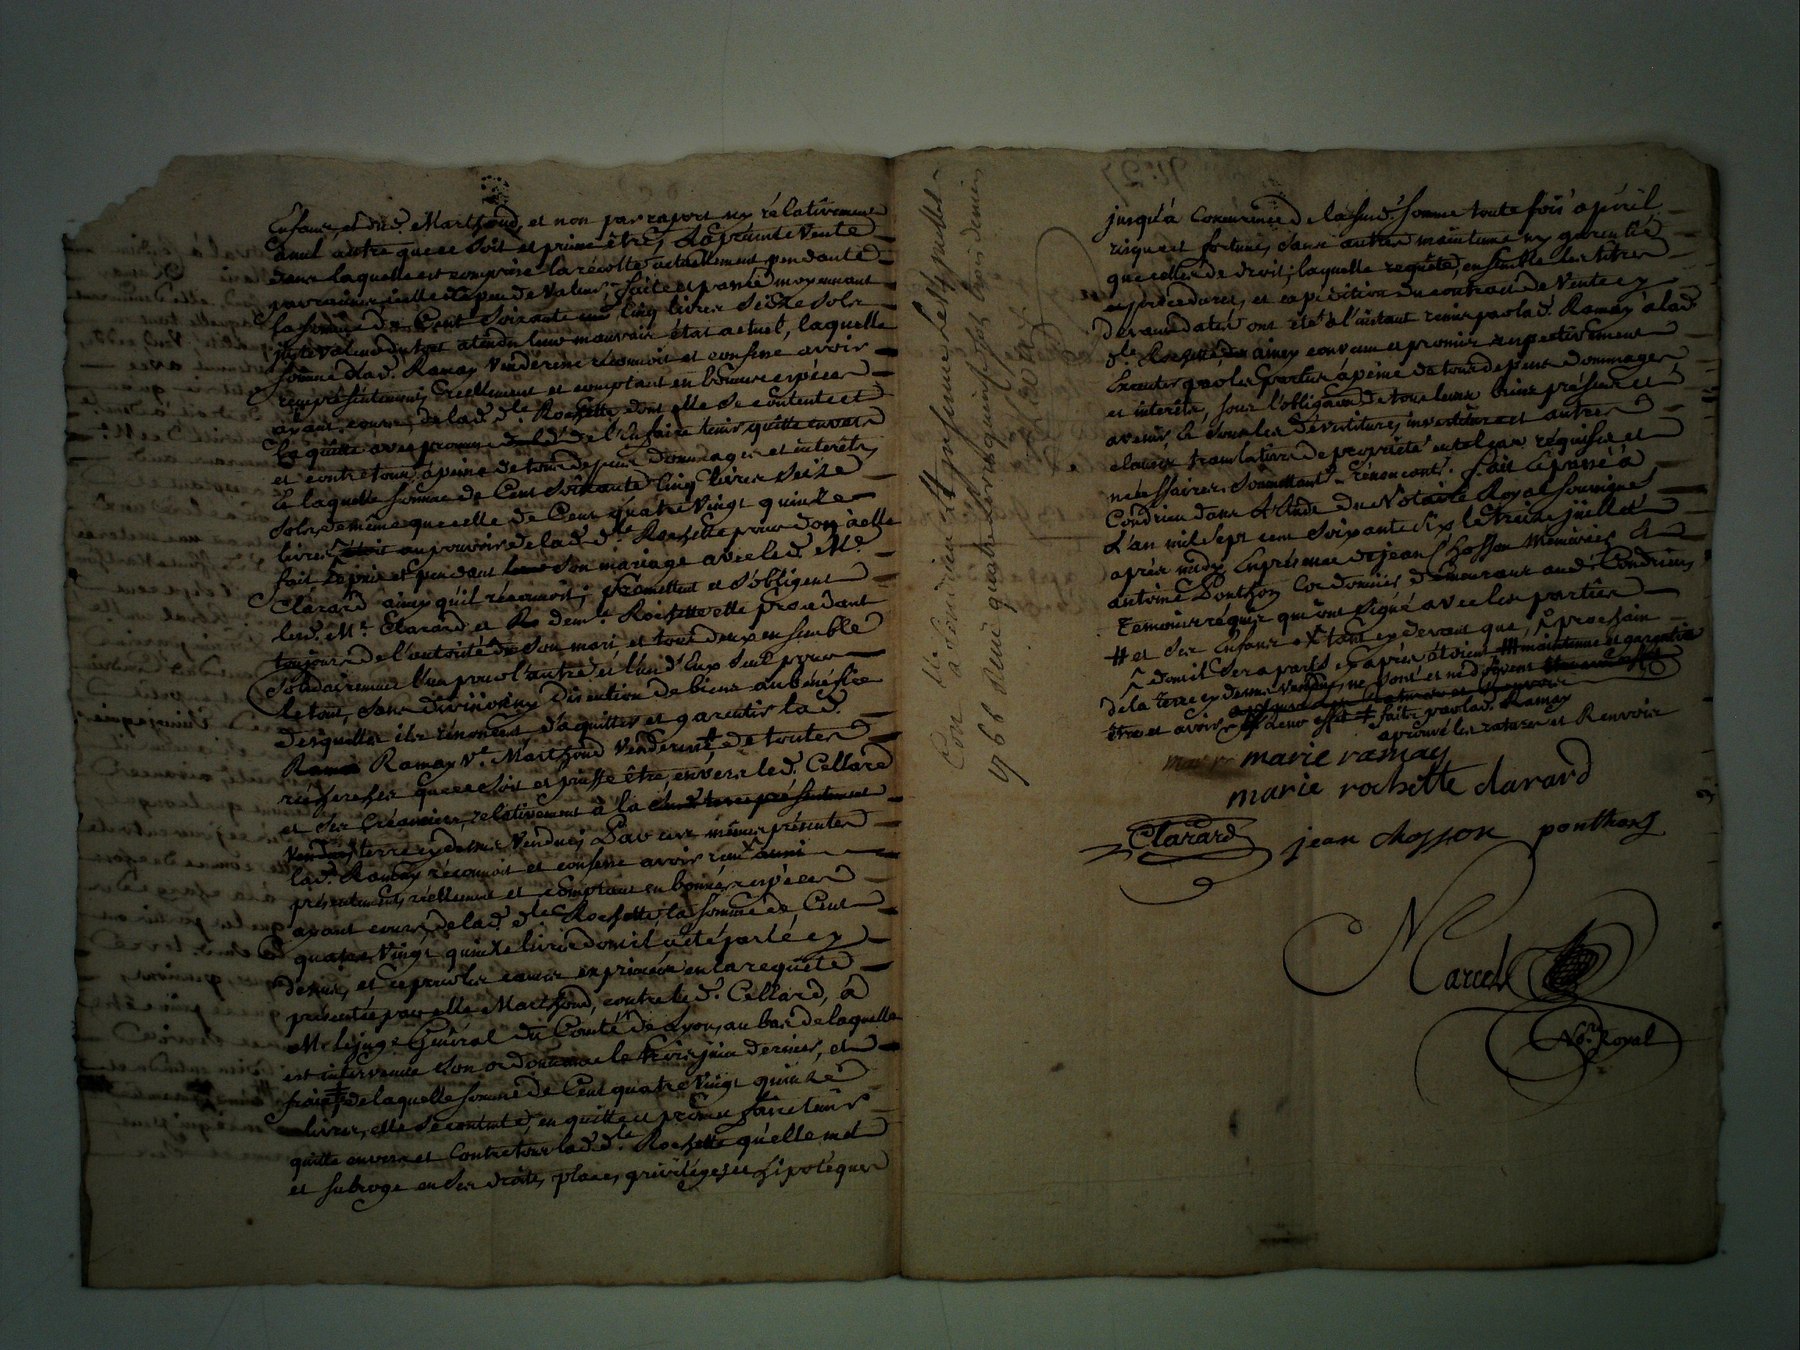 Enfans, et dud. Marthoud, et non par raport ny rélativement
a nul autre que ce soit et puisse être, La présente Vente
dans laquelle est comprise la récolte actuellement pendante
par racines, icelle de peu de valeur, faite et passée moyennant
la somme de Cent soixante cinq livres seize sols
juste valeur du tout atendu leur mauvais état actuel, laquelle
somme lad. Ramay Venderesse reconnoit et confesse avoir
reçu présentement, réellement et comptant en bonnes espèces
ayant cours, de lad. dlle Rochette, dont elle se contente et
la quitte avec promesse de l'en faire tenir quitte envers
et contre tous, à peine de tous dépens dommages et interets,
de laquelle somme de Cent soixante cinq livres seize
sols, de même que celle de Cent quatre Vingt quinze
livres, étoit au pouvoir de lad. dlle Rochette pour don à elle
fait depuis et pendant son mariage avec led. Mr.
Clérard ainsy qu'il réconnoit; promettent et s'obligent
lesd. Mr. Clarard et demlle Rochette elle procédant
toujours de l'autorité de son mari et tous deux ensemble
solidairement l'un pour l'autre et l'un d'Eux seul pour
le tout, sans division ny discution de biens au bénéfice
desquelles ils rénoncent, d'aquitter et garentir lad.
Ramay Ve. Marthoud Venderesse de toutes
récherches que ce soit et puisse être, envers led. Cellard
et ses Créanciers, relativement à la
terre cy dessus Vendue; Par ces mêmes présentes
lad. Ramay réconnoit et confesse avoir reçu aussi
présentement, réellement et comptant en bonnes espèces
ayant cours, de lad. dlle Rochette, la somme de Cent
quatre Vingt quinze livres dont il a été parlé cy
dessus, et ce pour les causes exprimées en la requête
présentée par elle Marthoud, contre led. Cellard, à
Mr. le juge Général du Comté de Lyon, au bas de laquelle
est intervenue son ordonnance le trois juin dernier, et
frais, de laquelle somme de Cent quatre Vingt quinze
livres, elle se contente, en quitte et promet faire tenir
quitte envers et contre tous lad. dlle Rochette qu'elle met
et subroge en ses droits, places, privilèges et hipotèques
Con à Condrieu
1766 Reçu quatre livres quinze sols trois deniers
jusqu'à concurrence de lasusd. somme toute fois à péril
risque et fortune, sans autre maintenue ny garentie
que celles de droit; laquelle requête, ensemble les titres
et procédures, et expédition du contract de Vente cy
devant daté ont été à l'instant remis par lad. Ramay à lad.
dlle Rochette, ainsy convenu et promis respectivement
Executer par les parties à peine de tous dépens dommages
et interêts, sous l'obligation de tous leurs biens présens et
avenir, et sous les dévestitures, investitures et autres
clauses translatives de proprieté en tel cas réquises et
nécessaires. soumettant. rénoncant. Fait et passé à
Condrieu dans l'Etude du Notaire Royal soussigné
L'an mil sept cent soixante six le treize juillet
après midy En présence de jean Chosson Menuisier, et
antoine Ponthon Cordonnier demeurans aud. Condrieu
temoins réquis qui ont signé avec les parties
# et ses Enfans tant cy devant que prochain
dont il sera parlé cy après étoient maintenue et garentie
de la terre cy dessus Vendue, ne sont et ne doivent
être et avoir leur effet faite par lad. Ramay
aprouvé les ratures et Renvois
marie ramay
marie rochette clarard
Clarard jean chosson ponthon
Marcel
No.re Royal